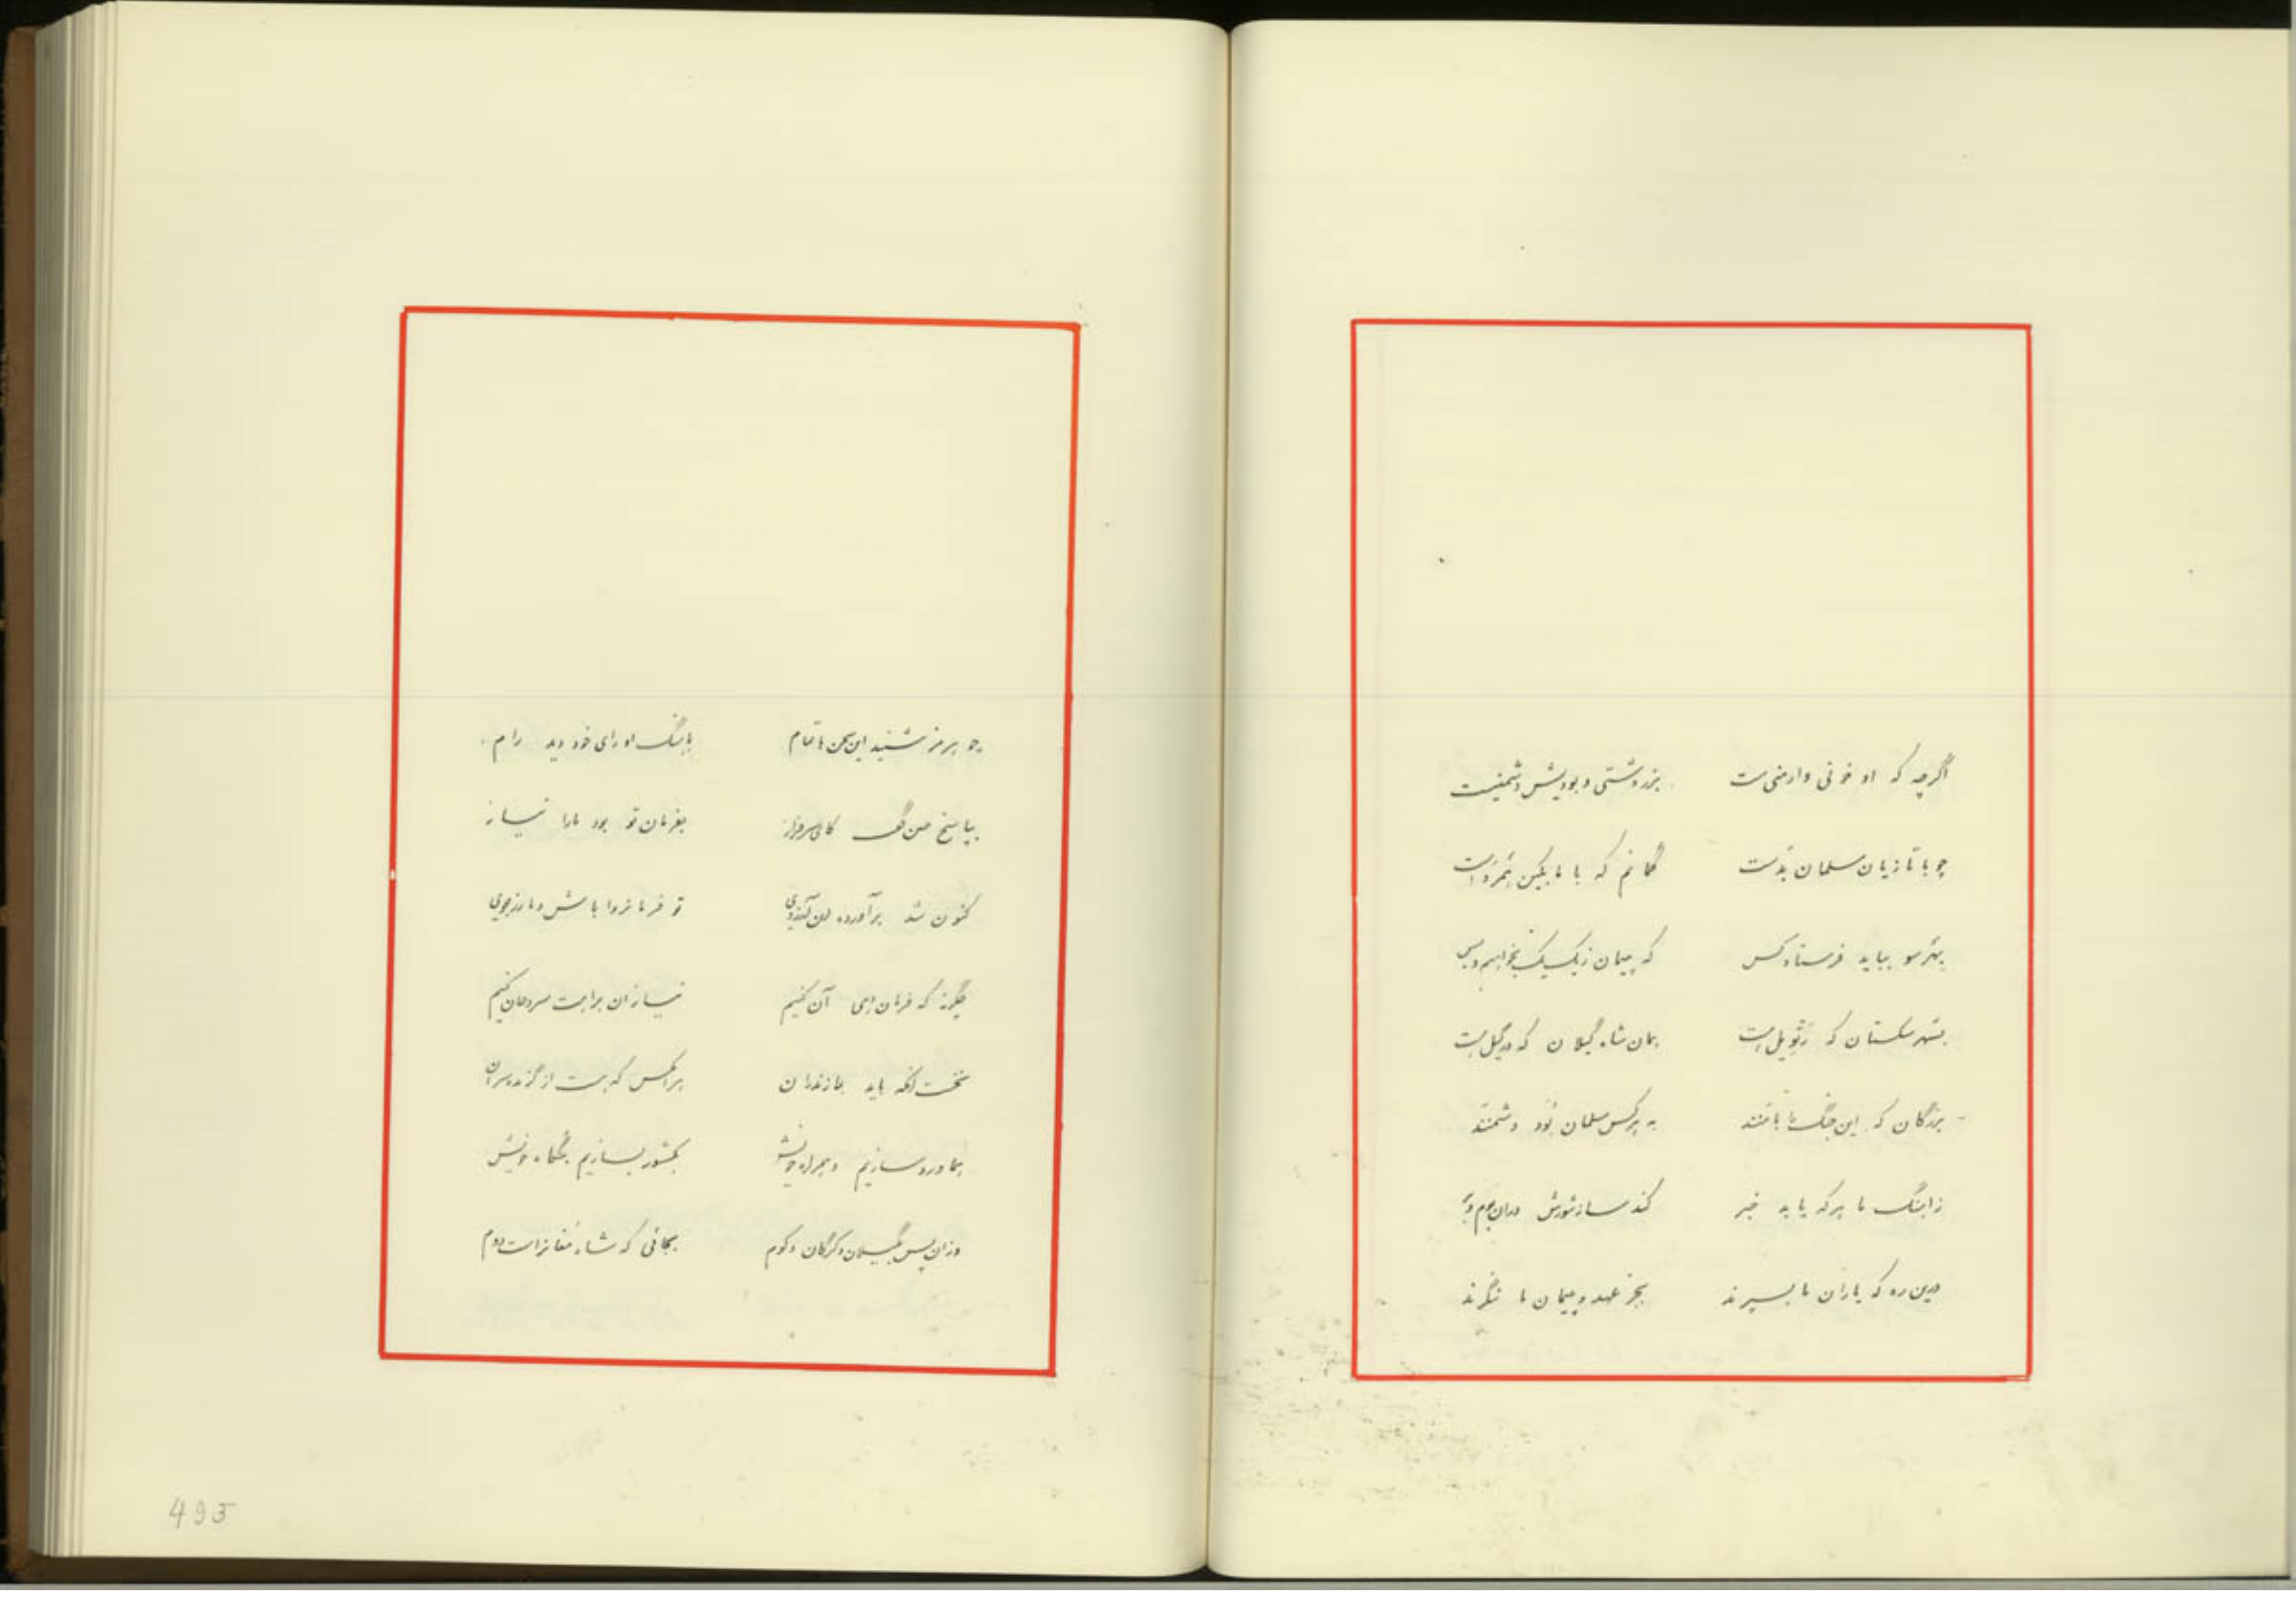 اگرچه که او خونی و ارمنی‌ست بزردشتی و بودیش دشمنیست
چو با تازیان مسلمان بدست گمانم که با ما بکین
بهر سو بباید فرستاد کس که پیمان ز یک یک بخواهیم و بس
بشهر سکستان که همان شاه گیلان که در گیل هست
بزرگان که این جنگ را بامنند به هر کس مسلمان بود دشمنند
ز آهنگ ما هر که یابد خبر کند ساز شورش دران بوم و بر
درین ره که یاران ما بسپرند بجز عهد و پیمان ما ننگرند
چو هرمز شنید این سخن ها تمام باهنگ او رای خود دید رام
بپاسخ چنین گفت کای سرفراز بفرمان تو بود ما را نیاز
کنون شد برآورده تو فرمانروا باش و ما رزمجوی
هرگز که فرمان دهی آن کنیم نیازان براهت سر و جان کنیم
نخست آنکه باید بمازندران هر آنکس که هست از
بما در سازیم و همراه خویش بکشور بسازیم بنگاه خویش
وزان پس بگیلان و گرگان و کوم بجائی که شاه مغانراست بوم
495